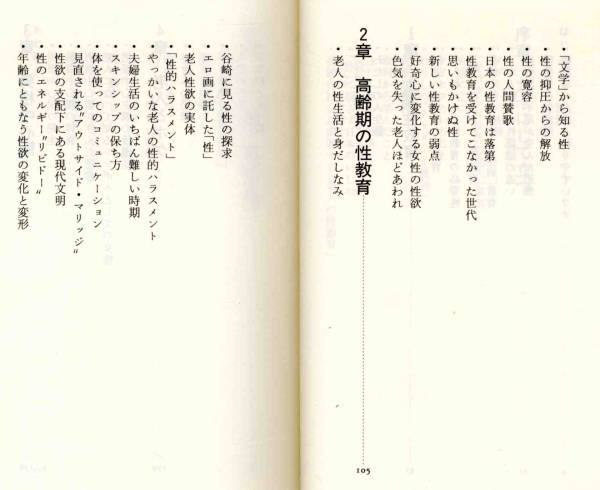 ・「文学」から知る性
・性の抑圧からの解放
・性の寛容
・性の人間賛歌
・日本の性教育は落第
・性教育を受けてこなかった世代
・思いもかけぬ性
・新しい性教育の弱点
・好奇心に変化する女性の性欲
・色気を失った老人ほどあわれ
2章 高齢期の性教育 105
・老人の性生活と身だしなみ
・谷崎に見る性の探求
・エロ画に託した「性」
・老人性欲の実体
・「性的ハラスメント」
・やっかいな老人の性的ハラスメント
・夫婦生活のいちばん難しい時期
・スキンシップの保ち方
・体を使ってのコミュニケーション
・見直される〝アウトサイド・マリッジ〟
・性欲の支配下にある現代文明
・性のエネルギー〝リビドー〟
・年齢にともなう性欲の変化と変形